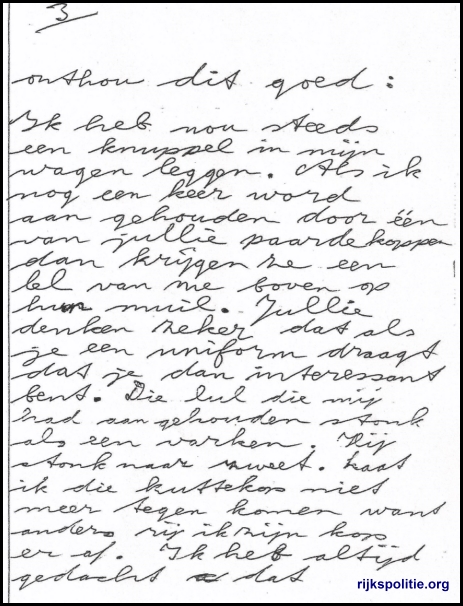 3
onthou dit goed:
Ik heb nou steeds
een knuppel in mijn
wagen leggen. Als ik
nog een keer word
aan gehouden door één
van jullie paardekoppen
dan krijgen ze een
lel van me boven op
hun muil. Jullie
denken zeker dat als
je een uniform draagt
dat je dan interessant
bent. Die lul die mij
had aangehouden stonk
als een varken. Hij
stonk naar zweet. Laat
ik die kuttekop niet
meer tegen komen want
anders rij ik zijn kop
er af. Ik heb altijd
gedacht dat
rijkspolitie.org